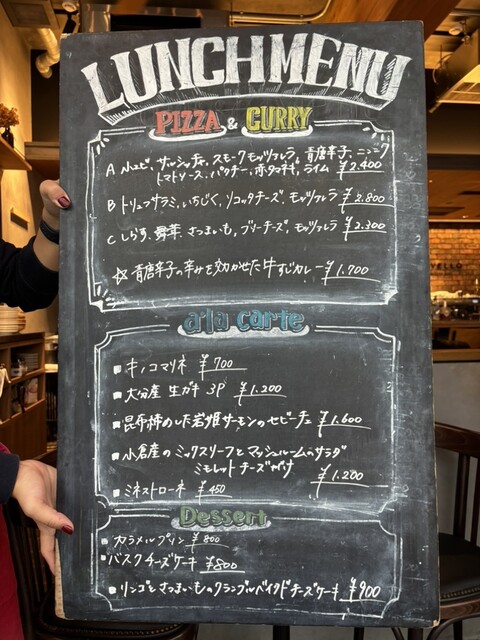 LUNCH MENU
PIZZA & CURRY
A 小エビ、サルシッチャ、スモークモッツァレラ、青唐辛子、ニンニク
トマトソース、パクチー、赤タマネギ、ライム ¥2.400
B トリュフサラミ、いちじく、リコッタチーズ、モッツァレラ ¥2.800
C しらす、舞茸、さつまいも、ブリーチーズ、モッツァレラ ¥2.300
☆ 青唐辛子の辛みを効かせた牛すじカレー ¥1.700
a'la carte
■ キノコマリネ ¥700
■ 大分産 生ガキ 3P ¥1.200
■ 昆布〆した岩姫サーモンのセビーチェ ¥1.600
■ 小倉産のミックスリーフとマッシュルームのサラダ
ミモレットチーズがけ ¥1.200
■ ミネストローネ ¥450
Dessert
■ カラメルプリン ¥800
■ バスクチーズケーキ ¥800
■ リンゴとさつまいものクランブルベイクドチーズケーキ ¥900
VELLO